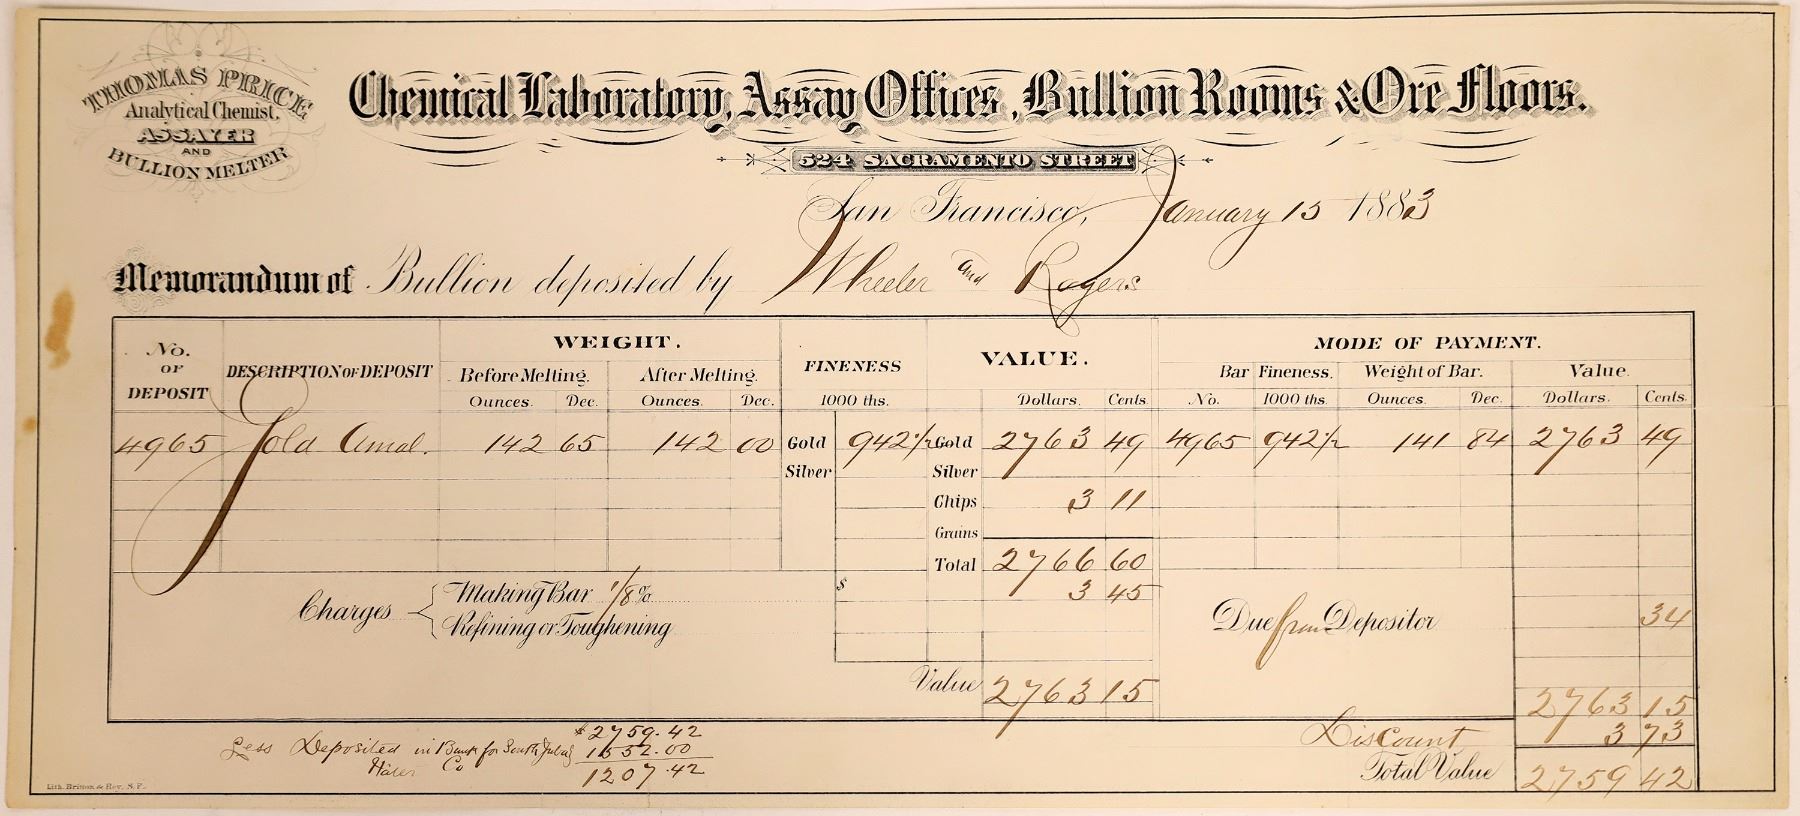 THOMAS PRICE
Analytical Chemist,
ASSAYER
AND
BULLION MELTER
Chemical Laboratory, Assay Offices, Bullion Rooms & Ore Floors.
524 SACRAMENTO STREET
San Francisco, January 15 1883
Memorandum of Bullion deposited by Wheeler and Rogers
No. OF DEPOSIT DESCRIPTION OF DEPOSIT WEIGHT. FINENESS VALUE. MODE OF PAYMENT.
Before Melting. After Melting. Bar Fineness. Weight of Bar. Value.
Ounces. Dec. Ounces. Dec. 1000 ths. Dollars. Cents. No. 1000 ths. Ounces. Dec. Dollars. Cents.
4965 Gold Amal. 142 65 142 00 Gold 942 1/2 Gold 2763 49 4965 942 1/2 141 84 2763 49
Silver Silver
Chips 3 11
Grains
Total 2766 60
Charges Making Bar 1/8 % $ 3 45
Refining or Toughening Due from Depositor 34
Value 2763 15 2763 15
Discount 3 73
Total Value 2759 42
$2759.42
Less Deposited in Bank for South 1552.00
Co 1207.42
Lith. Britton & Rey, S.F.